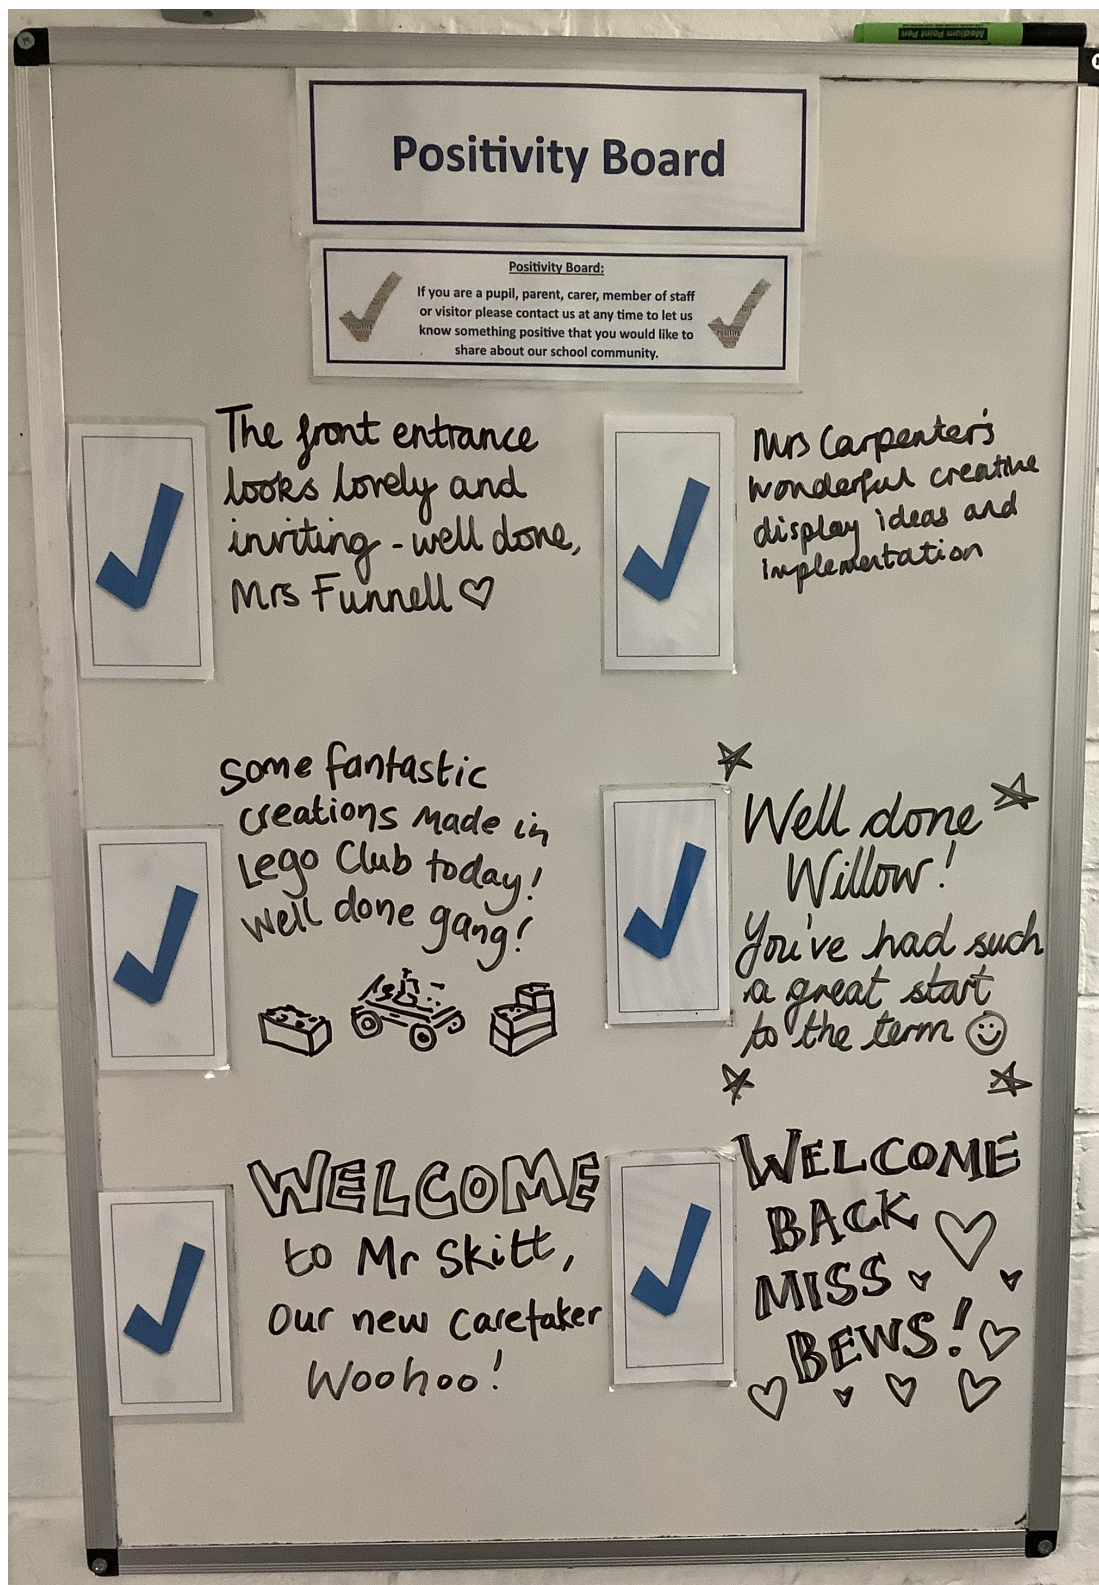 Medium Point Pen
Positivity Board
Positivity Board:
If you are a pupil, parent, carer, member of staff
or visitor please contact us at any time to let us
know something positive that you would like to
share about our school community.
The front entrance
looks lovely and
inviting - well done,
Mrs Funnell ♡
Mrs Carpenter's
wonderful creative
display ideas and
implementation
Some fantastic
creations made in
Lego Club today!
Well done gang!
Well done
Willow!
You've had such
a great start
to the term ☺
WELCOME
to Mr Skitt,
our new caretaker
Woohoo!
WELCOME
BACK
MISS
BEWS!